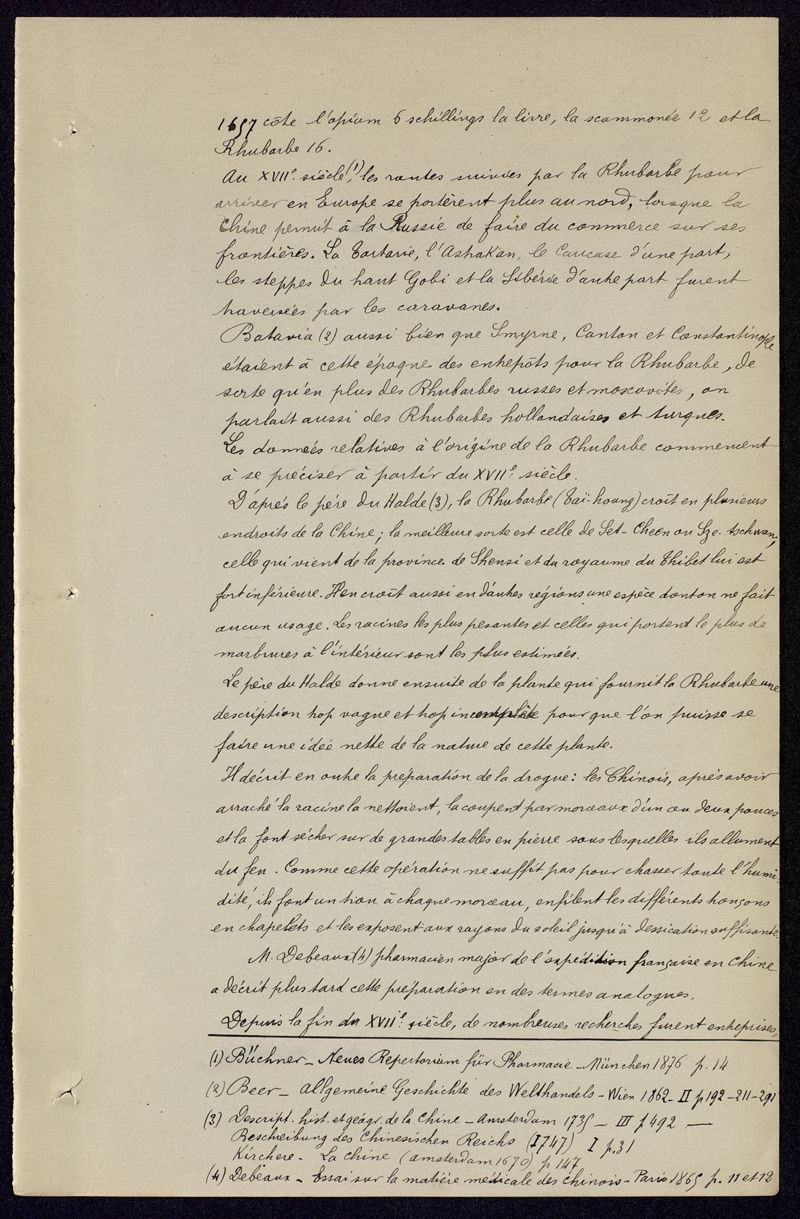 1657 côte l'opium 6 schillings la livre, la scammonée 12 et la
Rhubarbe 16.
Au XVIIe siècle (1), les routes suivies par la Rhubarbe pour
arriver en Europe se portèrent plus au nord, lorsque la
Chine permit à la Russie de faire du commerce sur ses
frontières. La Tartarie, l'Ashakan, le Caucase d'une part,
les steppes du haut Gobi et la Sibérie d'autre part furent
traversées par les caravanes.
Batavia (2) aussi bien que Smyrne, Canton et Constantinople
étaient à cette époque des entrepôts pour la Rhubarbe, de
sorte qu'en plus des Rhubarbes russes et moscovites, on
parlait aussi des Rhubarbes hollandaises et turques.
Les données relatives à l'origine de la Rhubarbe commencent
à se préciser à partir du XVIIe siècle.
D'après le père Du Halde (3), la Rhubarbe (Taï-hoang) croît en plusieurs
endroits de la Chine; la meilleure sorte est celle de Set-Cheen ou Sze-tschwan,
celle qui vient de la province de Shensi et du royaume du Thibet lui est
fort inférieure. Il en croît aussi en d'autres régions une espèce dont on ne fait
aucun usage. Les racines les plus pesantes et celles qui portent le plus de
marbrures à l'intérieur sont les plus estimées.
Le père du Halde donne ensuite de la plante qui fournit la Rhubarbe une
description trop vague et trop incomplète pour que l'on puisse se
faire une idée nette de la nature de cette plante.
Il décrit en outre la préparation de la drogue: les Chinois, après avoir
arraché la racine la nettoient, la coupent par morceaux d'un ou deux pouces
et la font sécher sur de grandes tables en pierre sous lesquelles ils allument
du feu. Comme cette opération ne suffit pas pour chasser toute l'humi-
dité, ils font un trou à chaque morceau, enfilent les différents tronçons
en chapelets et les exposent aux rayons du soleil jusqu'à dessication suffisante.
M. Debeaux (4) pharmacien major de l'expédition française en Chine
a décrit plus tard cette préparation en des termes analogues.
Depuis la fin du XVIIe siècle, de nombreuses recherches furent entreprises,
(1) Büchner - Neues Repertorium für Pharmacie - München 1876 p. 14
(2) Beer - Allgemeine Geschichte des Welthandels - Wien 1862 - II p 192 - 211 - 291
(3) Descript. hist. et géogr. de la Chine - Amsterdam 1735 - III f 492 —
Beschreibung des Chinesischen Reichs (1747) I p. 31
Kirchere - La Chine (Amsterdam 1670) p 147
(4) Debeaux - Essai sur la matière médicale des Chinois - Paris 1865 p. 11 et 12